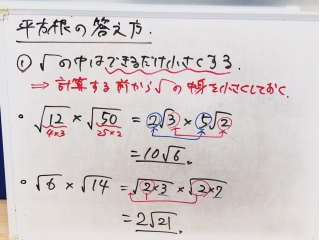 平方根の答え方.
① √の中はできるだけ小さくする.
⇒ 計算する前から√の中身を小さくしておく.
• √12 × √50 = 2√3 × 5√2
4×3 25×2
= 10√6.
• √6 × √14 = √2×3 × √2×7
= 2√21.